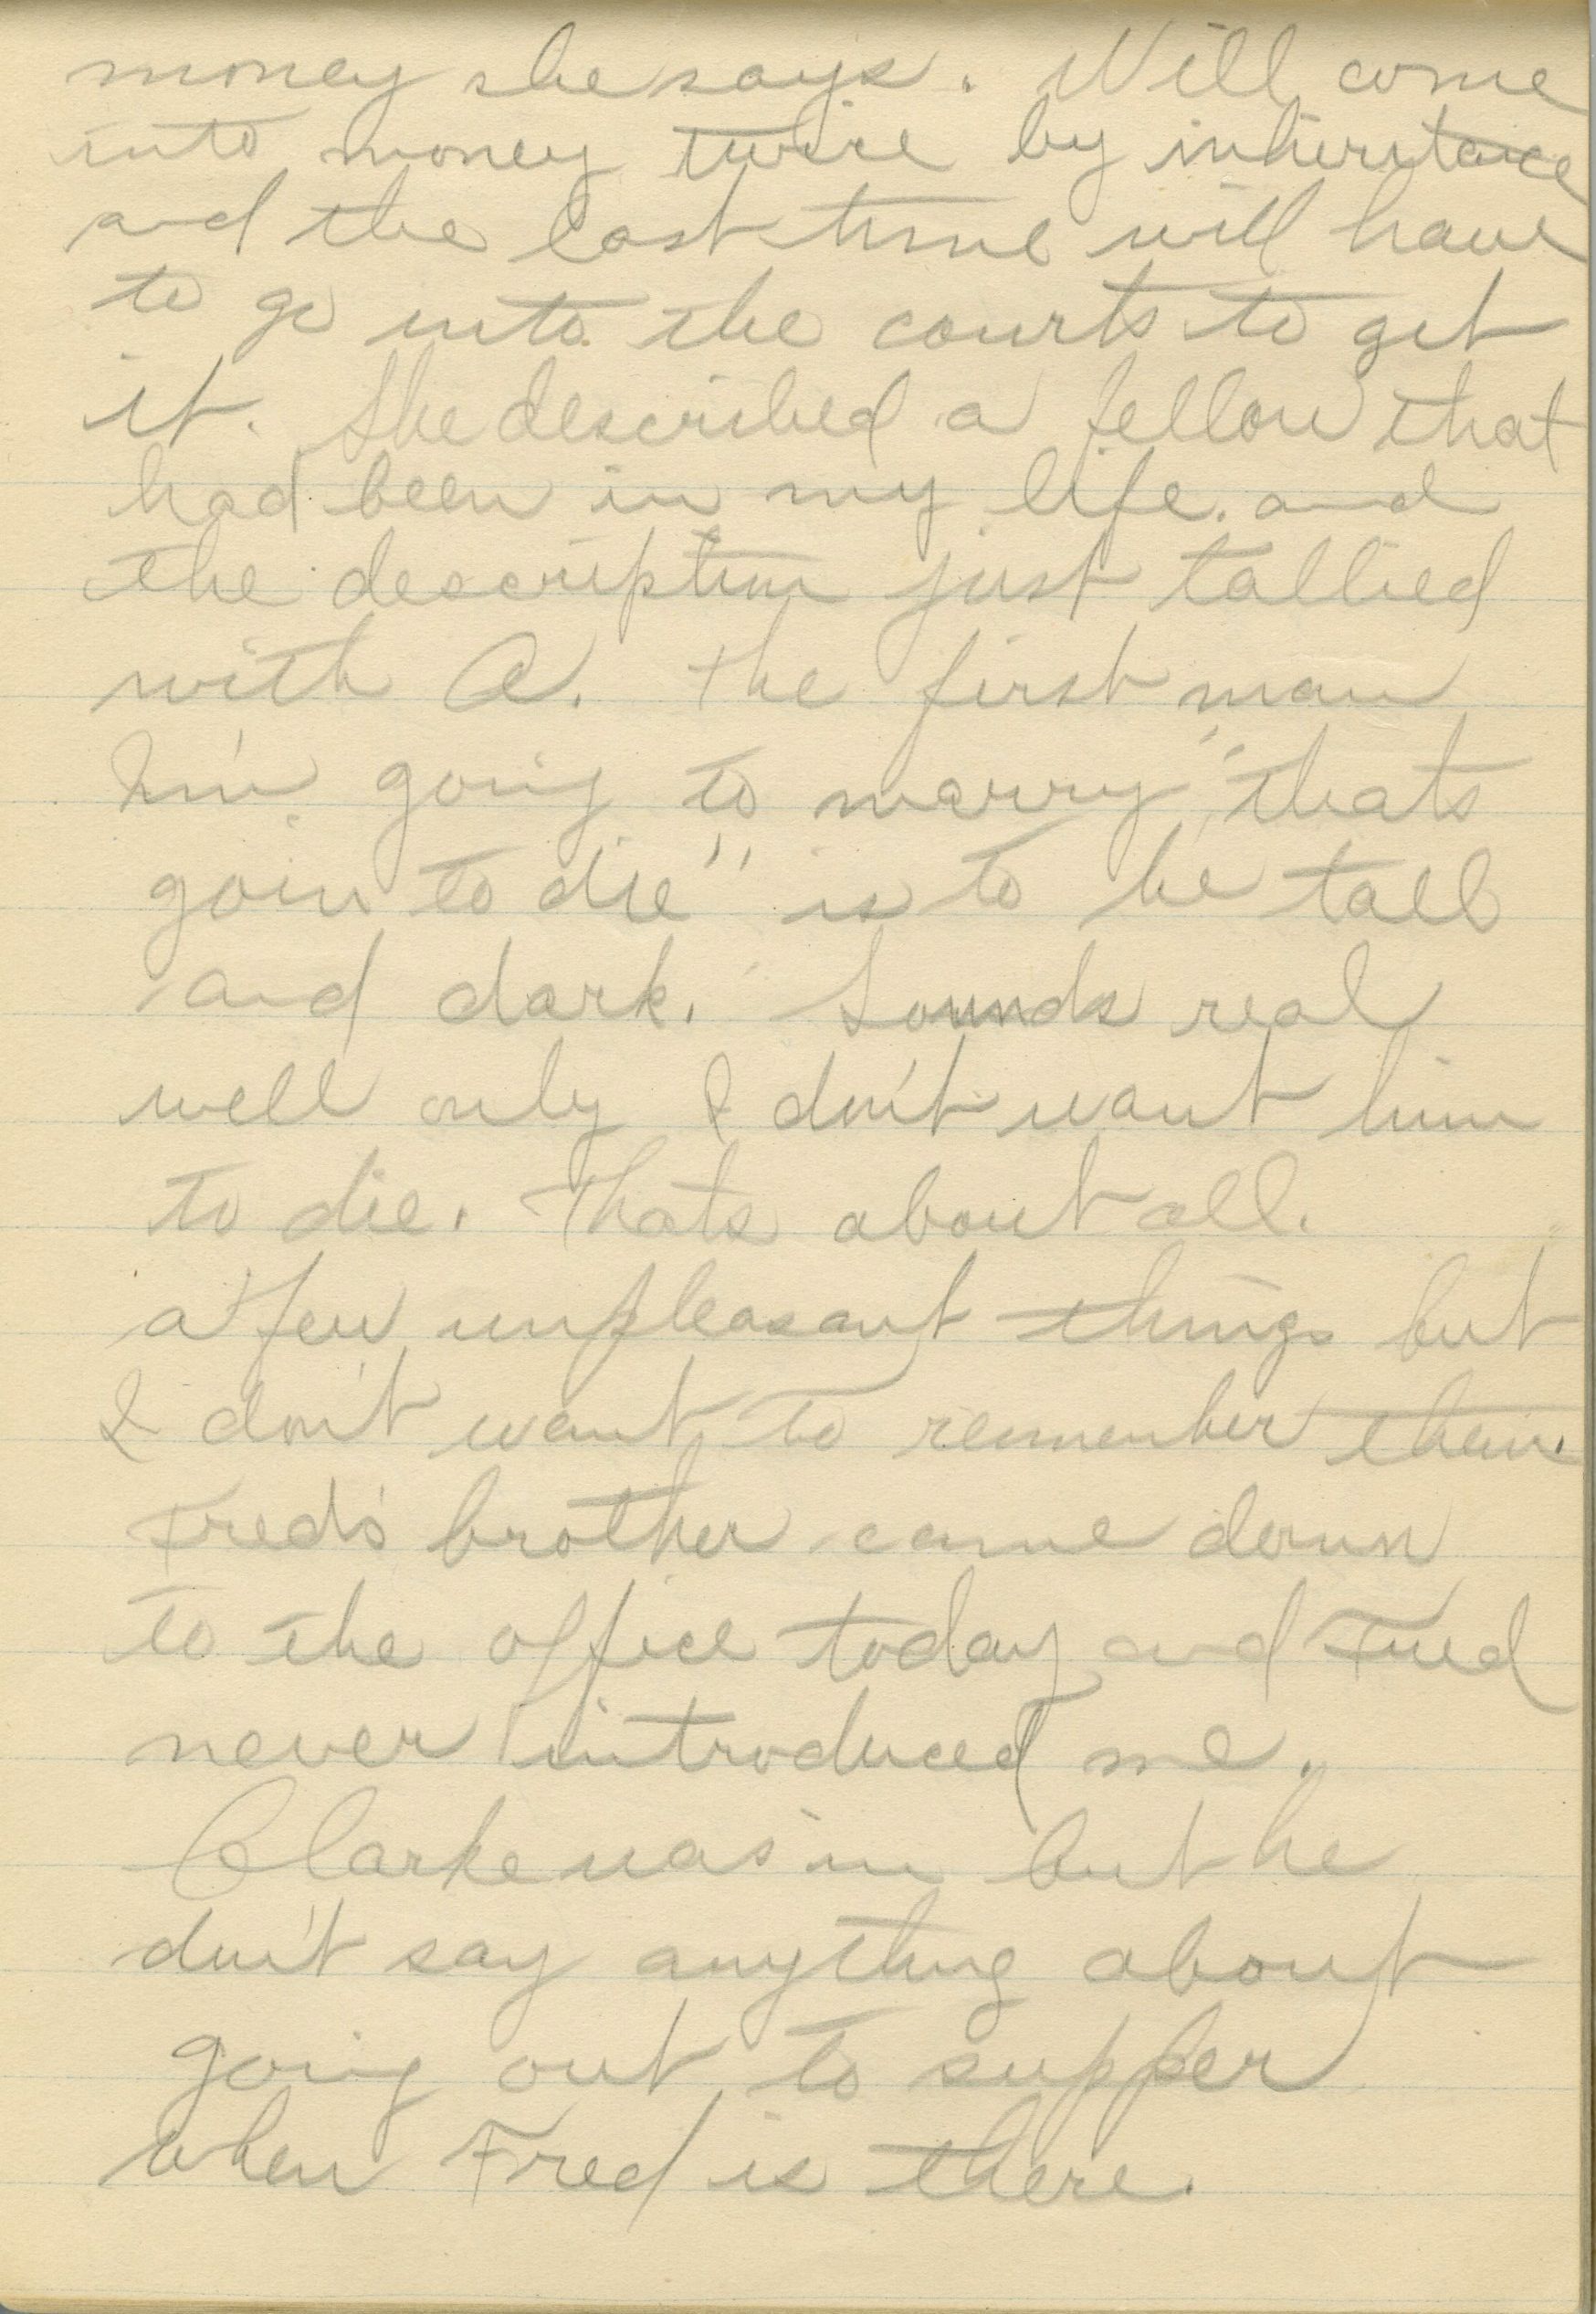 money she says. Will come
into money twice by inheritance
and the last time will have
to go into the courts to get
it. She described a fellow that
had been in my life. and
the description just tallied
with A. The first man
I'm going to marry "thats
goin to die" is to be tall
and dark. Sounds real
well only I don't want him
to die. Thats about all.
a few unpleasant things but
I don't want to remember them.
Fred's brother came down
to the office today and Fred
never introduced me.
Clarke was in but he
don't say anything about
going out to supper
when Fred is there.